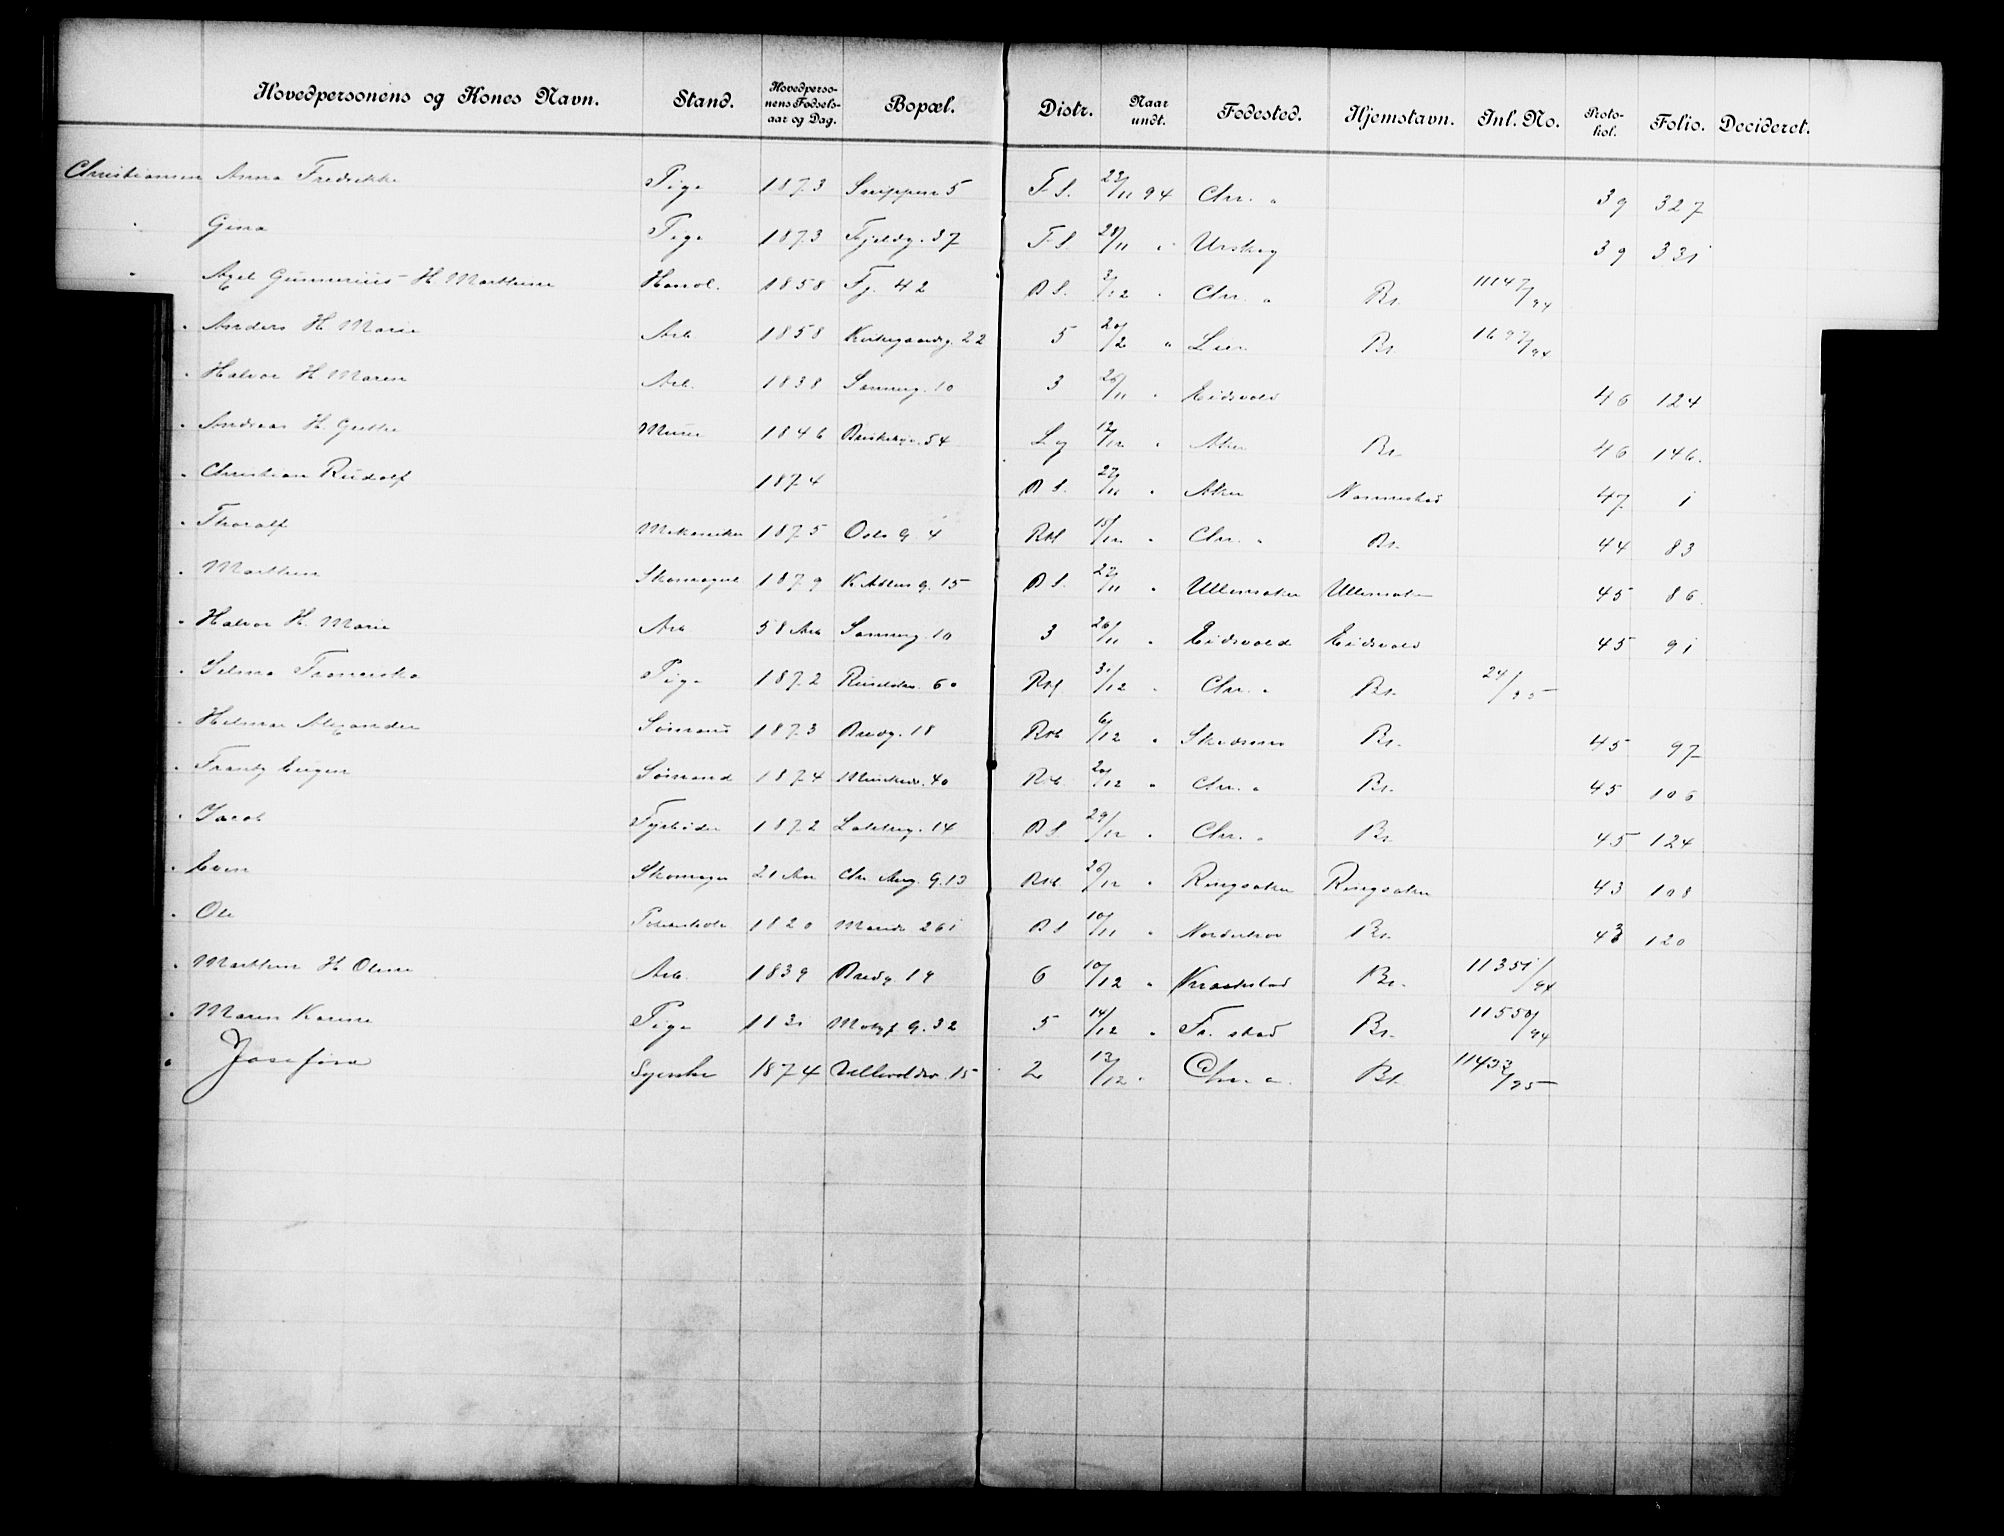 Hovedpersonens og Kones Navn. Stand. Hovedperso-nens Fødsels-aar og Dag. Bopæl. Distr. Naar undt. Fødested. Hjemstavn. Inl. No. Proto-kol. Folio. Decideret.
Christiansen Anna Fredrikke Pige 1873 Snippen 5 F S. 23/11 94 Chr. a 39 327
" Gina Pige 1873 Fjeldg. 37 F S. 28/11 " Urskog 39 331
" Axel Gunnerius H. Marthine Handl. 1858 Fj. 42 B S. 3/12 " Chr. a Br. 11147/94
" Anders H Marie Arb 1858 Kirkegaardg. 22 5 20/2 " Lier Br. 1697/94
" Halvor H Maren Arb. 1838 Sannerg. 10 3 26/11 " Eidsvold 46 124
" Andreas H. Murer 1846 Briskebyv. 54 Lg 12/12 " Aker Br. 46 146.
" Christian Rudolf 1874 B S. 27/11 " Aker 47 1
" Thoralf Mekaniker 1875 Oslo g. 4 Rbl 15/12 " Chr. a Br. 44 83
" Marthin Skomager 1879 15 B S. 27/11 " Ullensaker Ullensaker 45 86.
" Halvor H. Marie Arb 58 Aar Sannerg. 10 3 26/11 " Eidsvold Eidsvold 45 91
" Selma Franciska Pige 1872 60 Rbl 31/12 " Chr. a Br. 24/95
" Helmar Alexander Sømand 1873 Bredg. 18 Rbl 6/12 " Skedsmo Br. 45 97
" Frantz Eugen Sømand 1874 40 Rbl. 20/12 " Chr. a Br. 45 106
" Jacob Fyrbøder 1872 14 B S 29/12 " Chr. a Br. 45 124
" Even Skomager 21 Aar Chr. Aug. g. 13 Rbl 26/12 " Ringsaker Ringsaker 43 108
" Ole 1820 Marid. 261 B S 10/11 " Norderhov Br. 43 120
" Marthin H Oline Arb. 1839 Bredg. 19 6 10/12 " Kraakstad Br. 11351/94
" Maren Karine Pige 113 32 5 14/12 " Fr. stad Br. 11550/94
" Josefine Syerske 1874 15 2 13/12 " Chr. a. Br. 11433/95